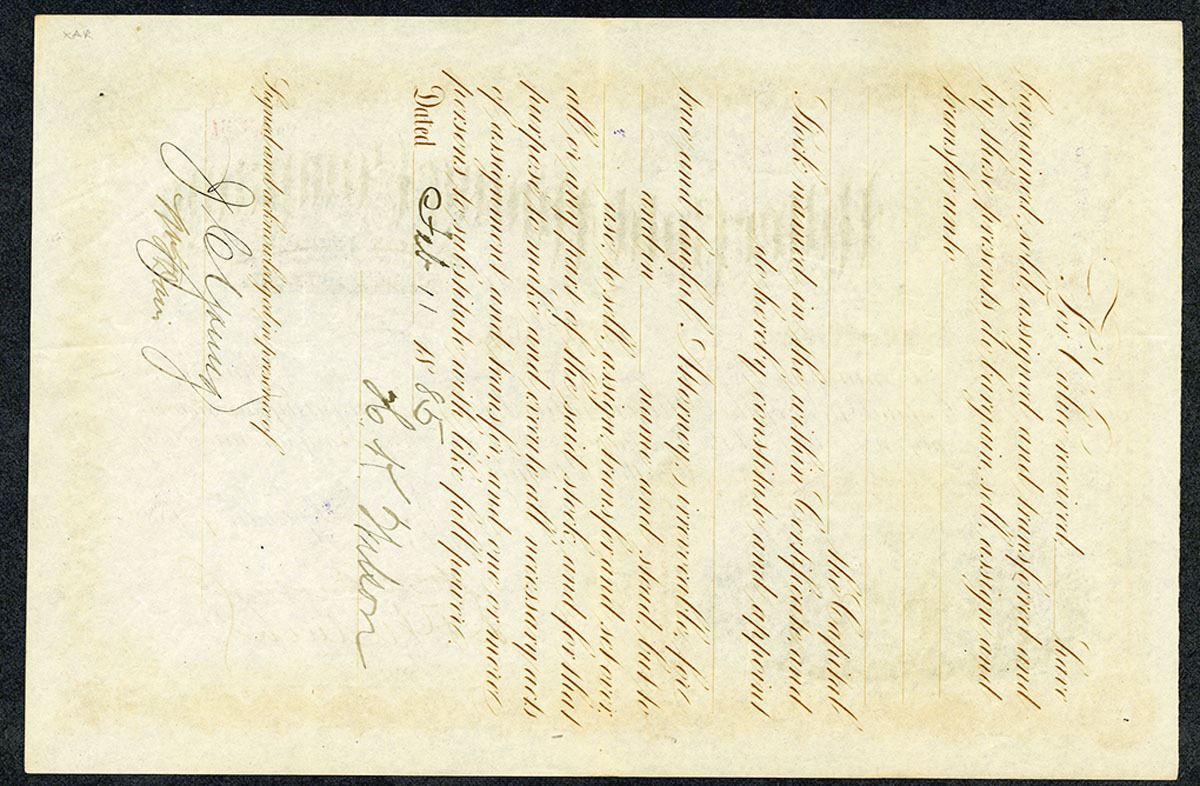 For Value received ______ have
bargained, sold, assigned and transferred and
by these presents do bargain, sell, assign and
transfer unto
the Capital
Stock named in the within Certificate and
do hereby constitute and appoint
true and lawful Attorney, irrevocable for
and in name and stead, but to
use, to sell, assign, transfer and set over,
all or any part of the said stock, and for that
purpose, to make and execute all necessary acts
of assignment and transfer, and one or more
persons to substitute with like full power.
Dated Feb 11 1885
H K Wilson
Signed and acknowledged in presence of
J C Young
XAR